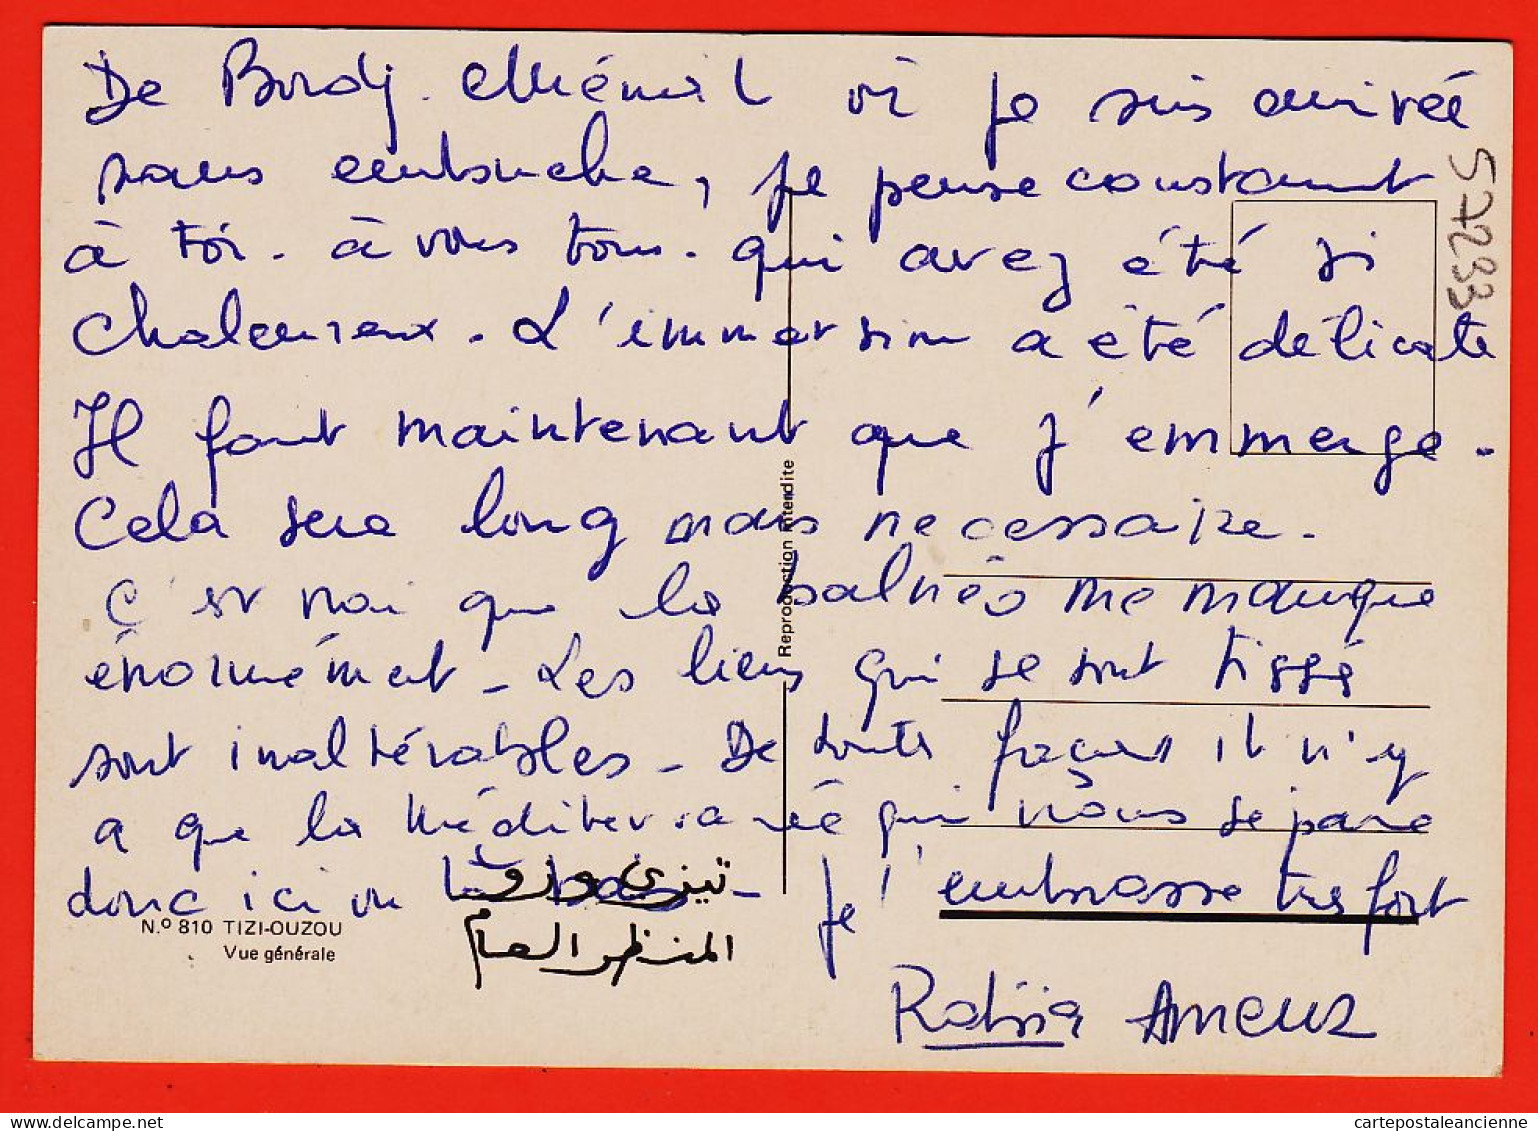 De Bordj Ménaïl où je suis arrivée
sans embuche, je pense constamt
à toi. à vous tous. qui avez été si
chaleureux. L'immersion a été délicate
Il faut maintenant que j'emmerge.
Cela sera long mais necessaire.
C'est vrai que la balnéo me manque
énormément - Les liens qui se sont tissés
sont inaltérables - De toutes façons il n'y
a que la Méditerranée qui nous sépare
donc ici ou là bas - Je t'embrasse très fort
Rabia Ameur
57233
Reproduction interdite
N.º 810 TIZI-OUZOU
Vue générale
تيزي وزو
المنظر العام
cartepostaleancienne.com